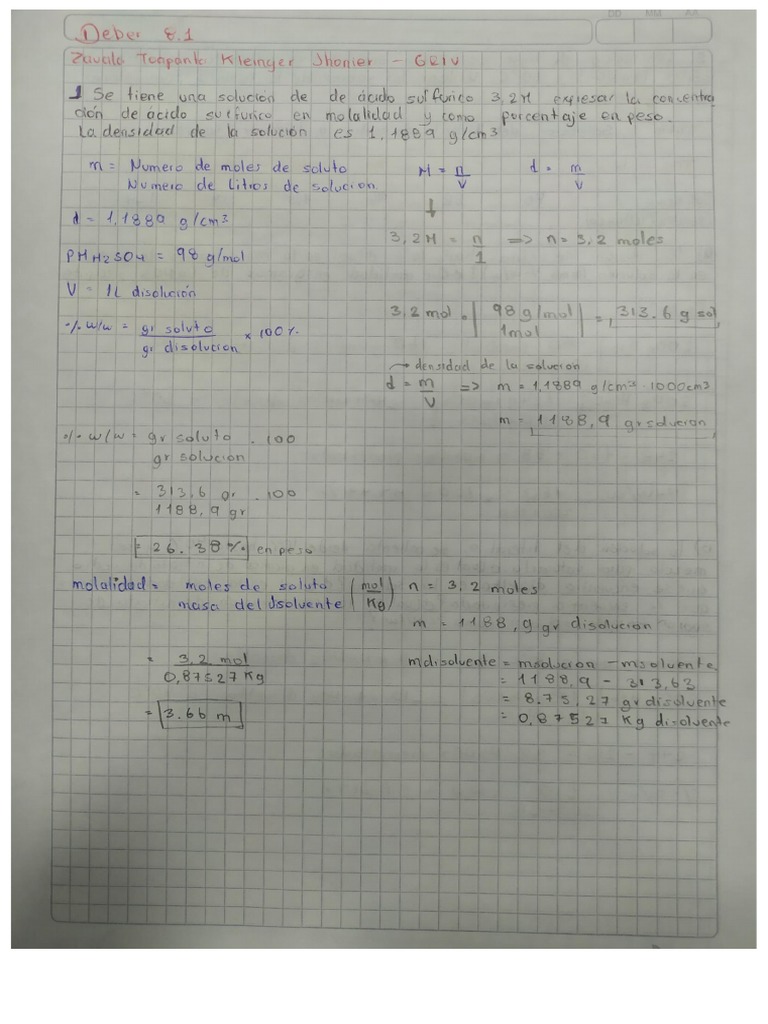 DD MM AA
Deber 8.1
Zavala Toapanta Kleinger Jhonier - GRIV
1 Se tiene una solución de de ácido sulfurico 3,2M expresar la concentra
ción de ácido sulfurico en molalidad y como porcentaje en peso.
La densidad de la solución es 1,1889 g/cm³
m = Numero de moles de soluto
Numero de Litros de solucion
M = n/V
d = m/V
↓
d = 1,1889 g/cm³
3,2M = n/1 => n = 3,2 moles
PM H2SO4 = 98 g/mol
V = 1L disolución
3,2 mol · | 98 g/mol / 1mol | = 313.6 g sol
% w/w = gr soluto / gr disolucion × 100%
→ densidad de la solucion
d = m/V => m = 1,1889 g/cm³ · 1000cm³
m = 1188,9 gr solucion
% w/w = gr soluto / gr solucion · 100
= 313,6 gr / 1188,9 gr · 100
= 26.38 % en peso
molalidad = moles de soluto / masa del dsolvente (mol/Kg)
n = 3,2 moles
m = 1188,9 gr disolucion
= 3,2 mol / 0,87527 Kg
= 3.66 m
mdisolvente = msolucion - msolvente
= 1188,9 - 313,63
= 8.75,27 gr disolvente
= 0,87527 Kg disolvente